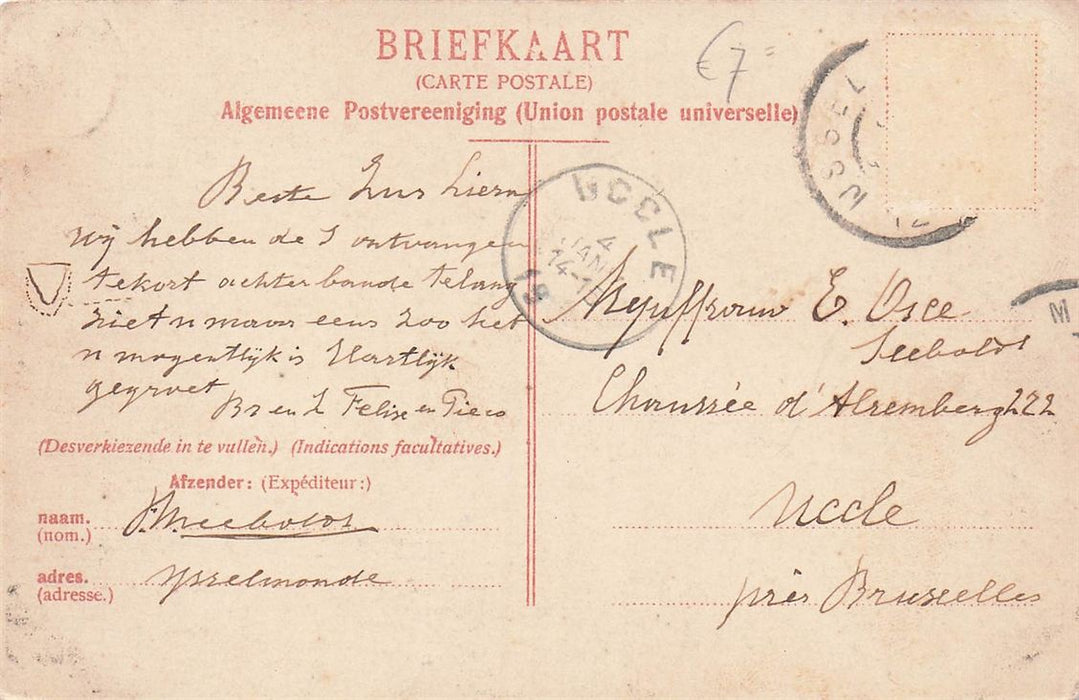 BRIEFKAART
(CARTE POSTALE)
Algemeene Postvereeniging (Union postale universelle)
€ 7 =
Beste Zus
wij hebben de ontvangen
tekort achterbande
ziet n maar eens zoo het
n mogentlijk is Hartlijk
gegroet
Br en Z Felix en
(Desverkiezende in te vullen.) (Indications facultatives.)
Afzender: (Expéditeur:)
naam.
(nom.)
adres. Ysselmonde
(adresse.)
UCCLE
4
JAN
14-1
Mejuffrouw E. Osce
Seeboldt
Chaussée d'Alsemberg 222
Uccle
près Bruxelles
USSEL
12
M